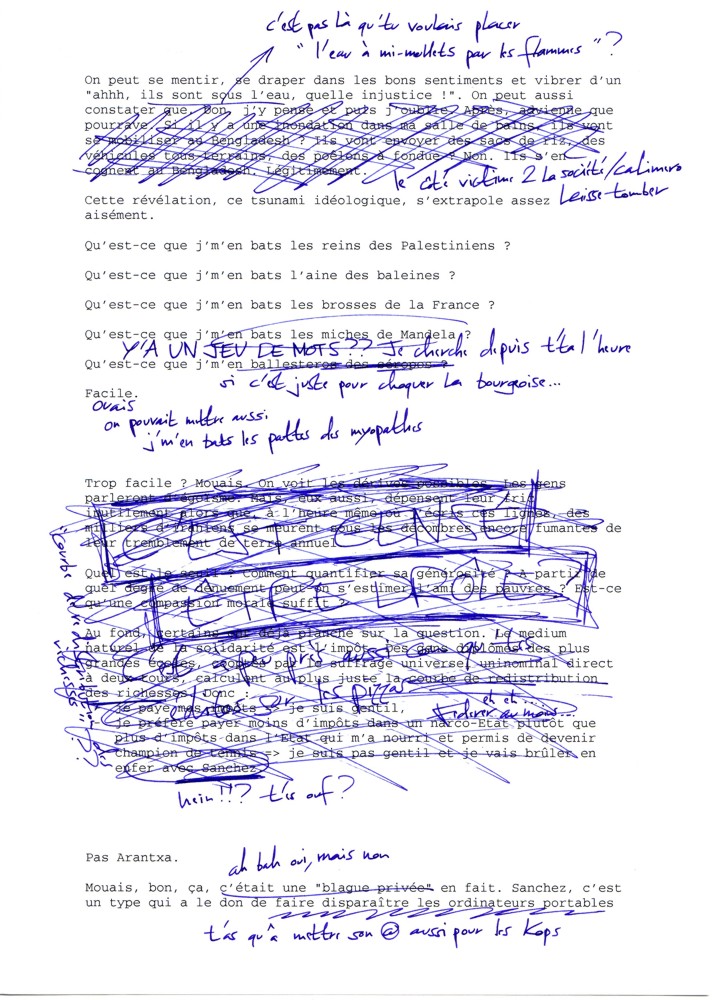 c'est pas là qu'tu voulais placer
"l'eau à mi-mollets par les flammes"?
On peut se mentir, se draper dans les bons sentiments et vibrer d'un
"ahhh, ils sont sous l'eau, quelle injustice !". On peut aussi
constater que, bon, j'y pense et puis j'oublie. Après, advienne que
pourrave. Si il y a une inondation dans ma salle de bains, ils vont
se mobiliser au Bengladesh ? Ils vont envoyer des sacs de riz, des
véhicules tous-terrains, des poêlons à fondue ? Non. Ils s'en
cognent au Bengladesh. Légitimement.
le côté victime 2 la société/calimero
laisse tomber
Cette révélation, ce tsunami idéologique, s'extrapole assez
aisément.
Qu'est-ce que j'm'en bats les reins des Palestiniens ?
Qu'est-ce que j'm'en bats l'aine des baleines ?
Qu'est-ce que j'm'en bats les brosses de la France ?
Qu'est-ce que j'm'en bats les miches de Mandela ?
Y'A UN JEU DE MOTS?? Je cherche depuis t'ta l'heure
Qu'est-ce que j'm'en ballesteros des séropos ?
si c'est juste pour choquer la bourgeoise...
Facile.
ouais
on pouvait mettre aussi
j'm'en bats les pattes des myopathes
Trop facile ? Mouais. On voit les dérives possibles. Les gens
parleront d'égoïsme. Mais, eux aussi, dépensent leur fric
inutilement alors que, à l'heure même où j'écris ces lignes, des
milliers d'Iraniens se meurent sous les décombres encore fumantes de
leur tremblement de terre annuel.
C'EST CENSÉ
Quel est le seuil ? Comment quantifier sa générosité ? A partir de
quel degré de dénuement peut-on s'estimer l'ami des pauvres ? Est-ce
qu'une compassion morale suffit ?
ETRE DROLE?
Au fond, certains ont déjà planché sur la question. Le medium
naturel de la solidarité est l'impôt. Des gens diplômés des plus
grandes écoles, cooptés par le suffrage universel uninominal direct
à deux tours, calculent au plus juste la courbe de redistribution
des richesses. Donc :
je paye mes impôts => je suis gentil,
je préfère payer moins d'impôts dans un narco-Etat plutôt que
plus d'impôts dans l'Etat qui m'a nourri et permis de devenir
champion de tennis => je suis pas gentil et je vais brûler en
enfer avec Sanchez.
"courbe de redistribution
richesses"!!
eh eh mi
hein!!? t'es ouf?
Pas Arantxa.
ah bah oui, mais non
Mouais, bon, ça, c'était une "blague privée" en fait. Sanchez, c'est
un type qui a le don de faire disparaître les ordinateurs portables
t'as qu'à mettre son @ aussi pour les Kops